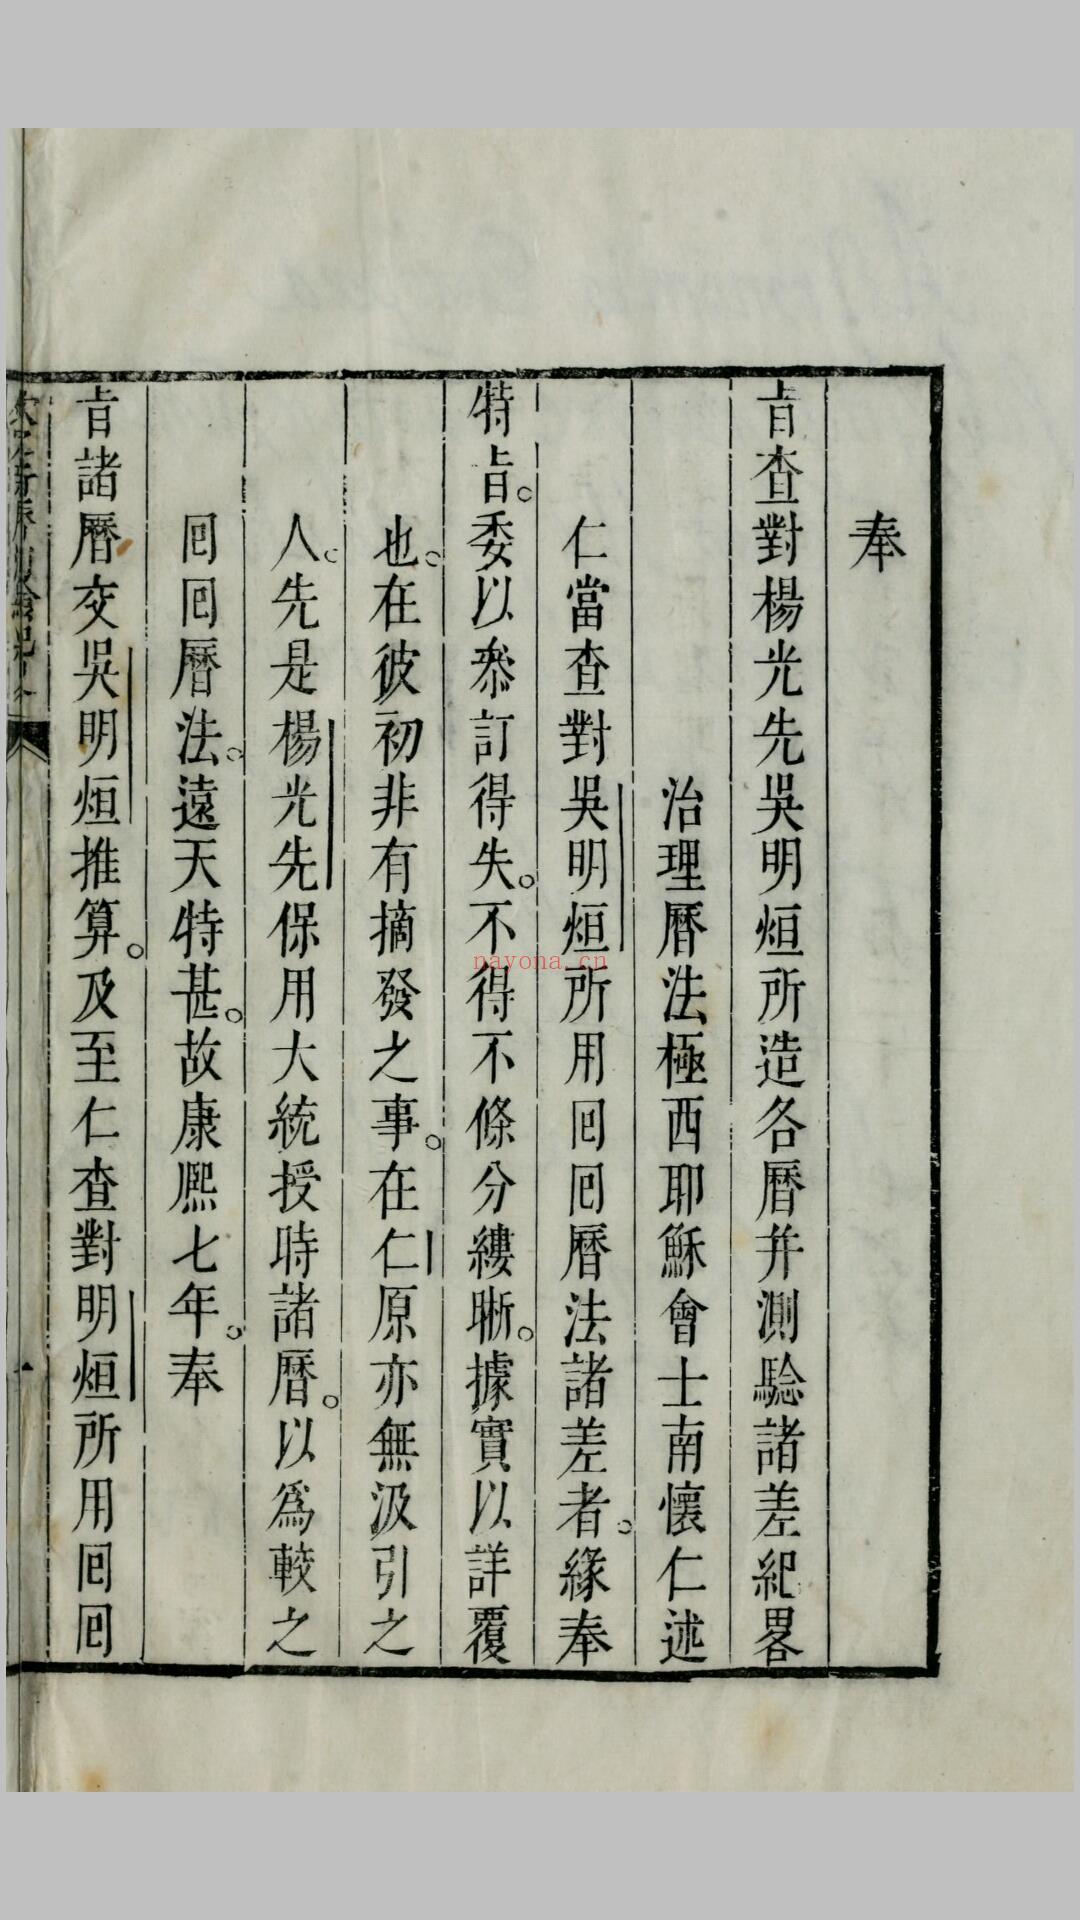 奉
旨查對楊光先吳明烜所造各曆并測驗諸差紀畧
治理曆法極西耶穌會士南懷仁述
仁當查對吳明烜所用回回曆法諸差者。緣奉
特旨。委以叅訂得失。不得不條分縷晰。據實以詳覆
也。在彼初非有摘發之事。在仁原亦無汲引之
人。先是楊光先保用大統授時諸曆。以爲較之
回回曆法。遠天特甚。故康熈七年。奉
旨諸曆交吳明烜推算。及至仁查對明烜所用回回
nayona.cn